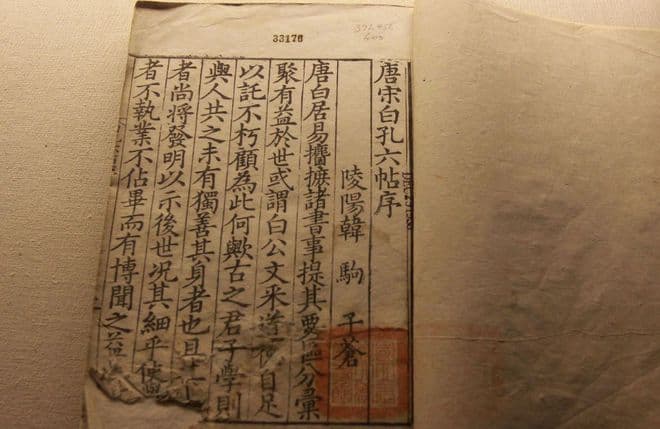 33176
唐宋白孔六帖序
陵陽韓 駒 子蒼
唐白居易攟摭諸書事提其要區分彙
聚有益於世或謂白公文采自足
以託不朽顧為此何歟古之君子學則
與人共之未有獨善其身者也且
者尚將發明以示後世况其細乎使
者不執業不佔畢而有博聞之益